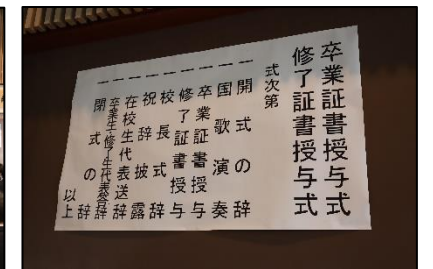 卒業証書授与式
修了証書授与式
式次第
一 開式の辞
一 国歌演奏
一 卒業証書授与
一 修了証書授与
一 校長式辞
一 祝辞披露
一 在校生代表送辞
一 卒業生修了生代表答辞
一 閉式の辞
以上